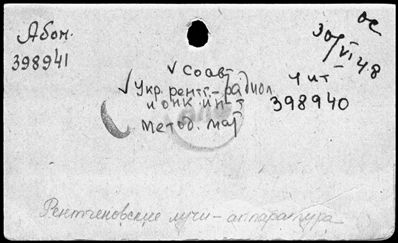 Абон.
398941
ос
30/VI 48
чит
398940
√ Соавт
√ Укр. рентг.-радиол.
и онк. ин-т
Метод. мат
Рентгеновские лучи - аппаратура